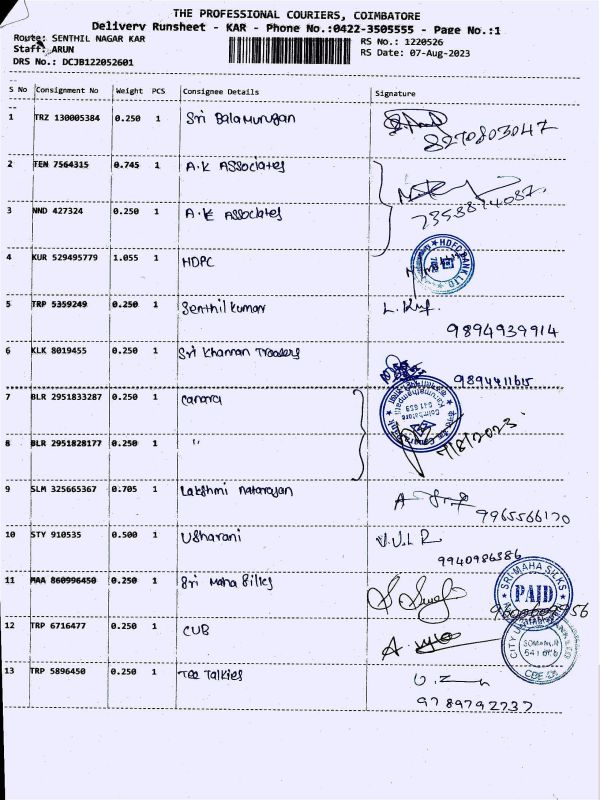 THE PROFESSIONAL COURIERS, COIMBATORE
Delivery Runsheet - KAR - Phone No.:0422-3505555 - Page No.:1
Route: SENTHIL NAGAR KAR RS No.: 1220526
Staff: ARUN RS Date: 07-Aug-2023
DRS No.: DCJB122052601
S No Consignment No Weight PCS Consignee Details Signature
1 TRZ 130005384 0.250 1 Sri Balamurugan
8270803047
2 TEN 7564315 0.745 1 A.K Associates
3 NND 427324 0.250 1 A.K Associates
4 KUR 529495779 1.055 1 HDPC
HDFC BANK LTD
5 TRP 5359249 0.250 1 Senthil kumar
9894939914
6 KLK 8019455 0.250 1 Sri Khannan Traders
9894411615
7 BLR 2951833287 0.250 1 canara
Karumathampatti
Coimbatore
641 659
8 BLR 2951828177 0.250 1 "
7/8/2023
9 SLM 325665367 0.705 1 Lakshmi natarajan
9965566170
10 STY 910535 0.500 1 Usharani V.U.L R
9940986386
11 MAA 860996450 0.250 1 Sri Maha Silks
SRI MAHA SILKS
PAID
12 TRP 6716477 0.250 1 CUB
CITY UNION BANK LTD
SOMANUR
CBE
13 TRP 5896450 0.250 1 Tee Talkies
9789792737